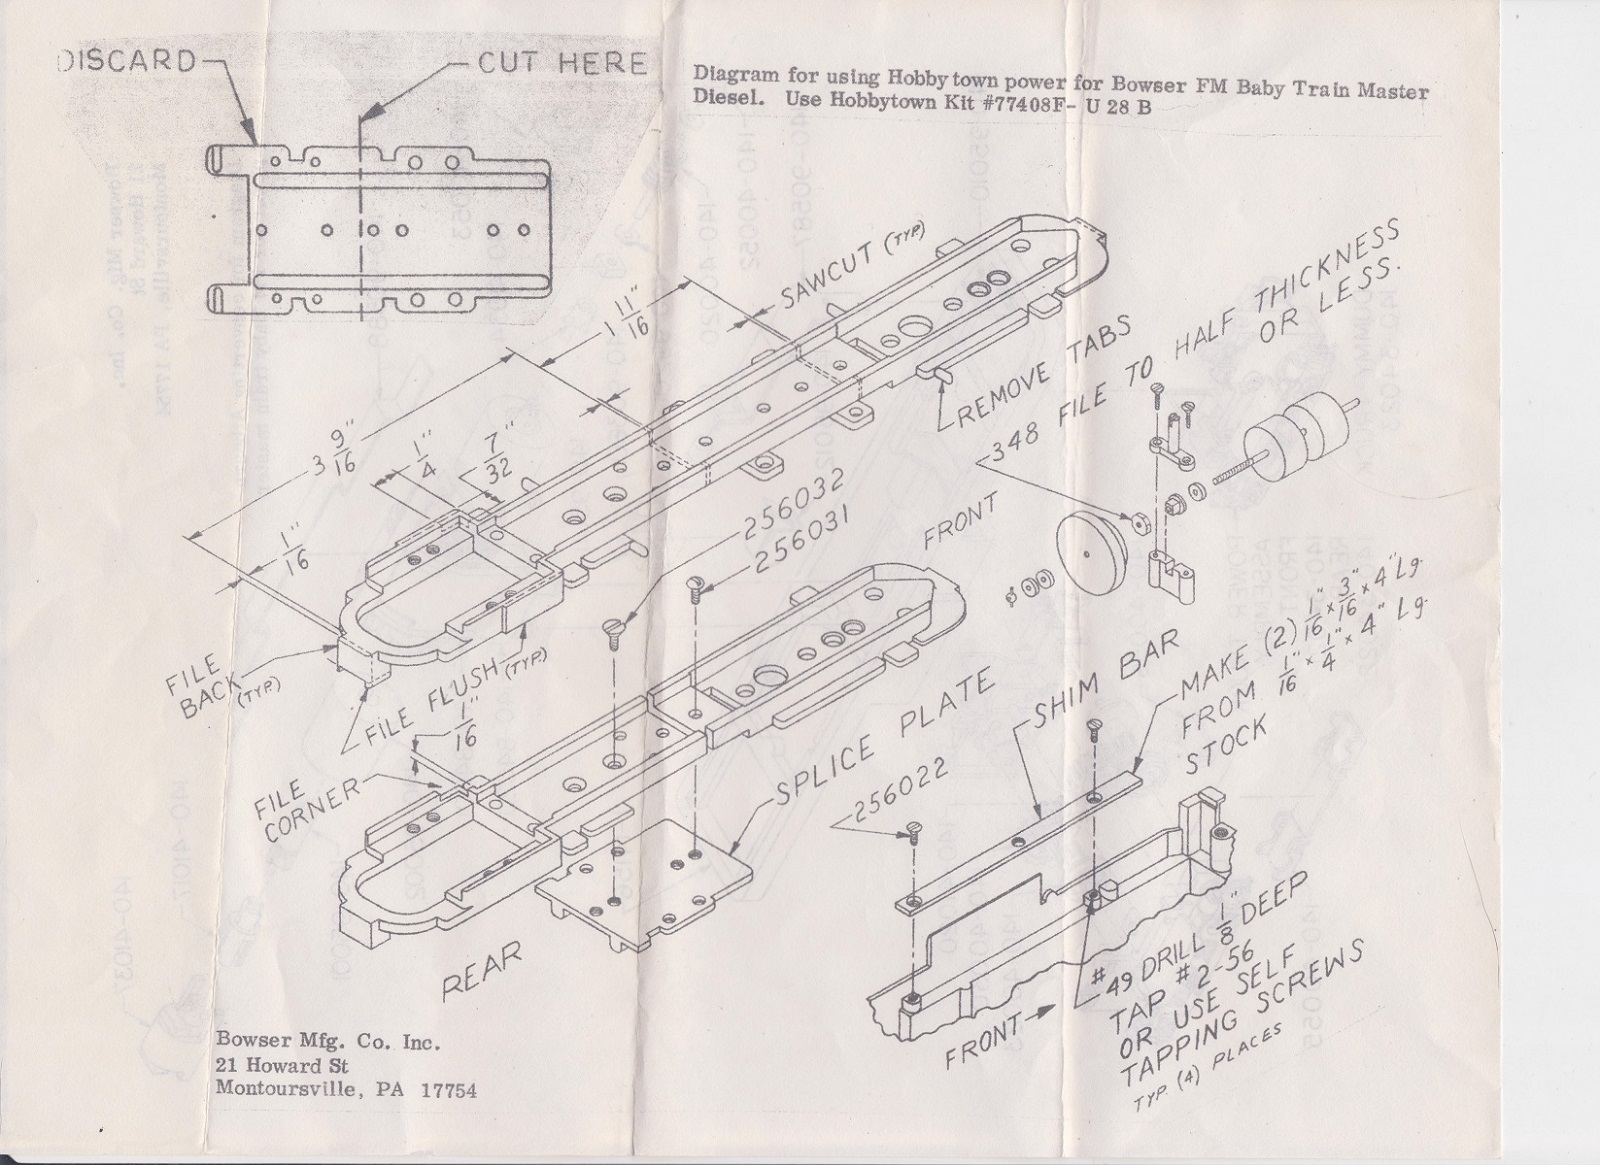 DISCARD
CUT HERE
Diagram for using Hobbytown power for Bowser FM Baby Train Master
Diesel. Use Hobbytown Kit #77408F- U 28 B
1 11/16"
SAWCUT (TYP.)
3 9/16"
1/4"
7/32"
1/16"
REMOVE TABS
348 FILE TO HALF THICKNESS
OR LESS.
256032
256031
FRONT
FILE
BACK (TYP.)
FILE FLUSH (TYP.)
1/16"
FILE
CORNER
SPLICE PLATE
SHIM BAR
MAKE (2) 1/16" x 3/16" x 4" Lg.
FROM 1/16" x 1/4" x 4" Lg.
STOCK
256022
REAR
FRONT
#49 DRILL 1/8" DEEP
TAP #2-56
OR USE SELF
TAPPING SCREWS
TYP. (4) PLACES
Bowser Mfg. Co. Inc.
21 Howard St
Montoursville, PA 17754